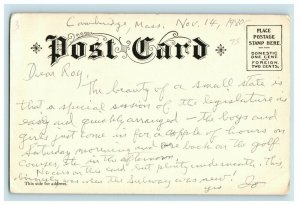 3
Cambridge, Mass. Nov. 14, 1940
Post Card
PLACE
POSTAGE
STAMP HERE.
DOMESTIC
ONE CENT.
FOREIGN
TWO CENTS.
Dear Roy:
The beauty of a small state is
that a special session of the legislature is
easy and quickly arranged – the boys and
girls just come in for a couple of hours on
Saturday morning and are back on the golf
courses, etc. in the afternoon!
No cars on this card, but plenty underneath. This,
when the Subway was new!
This side for address.
yrs